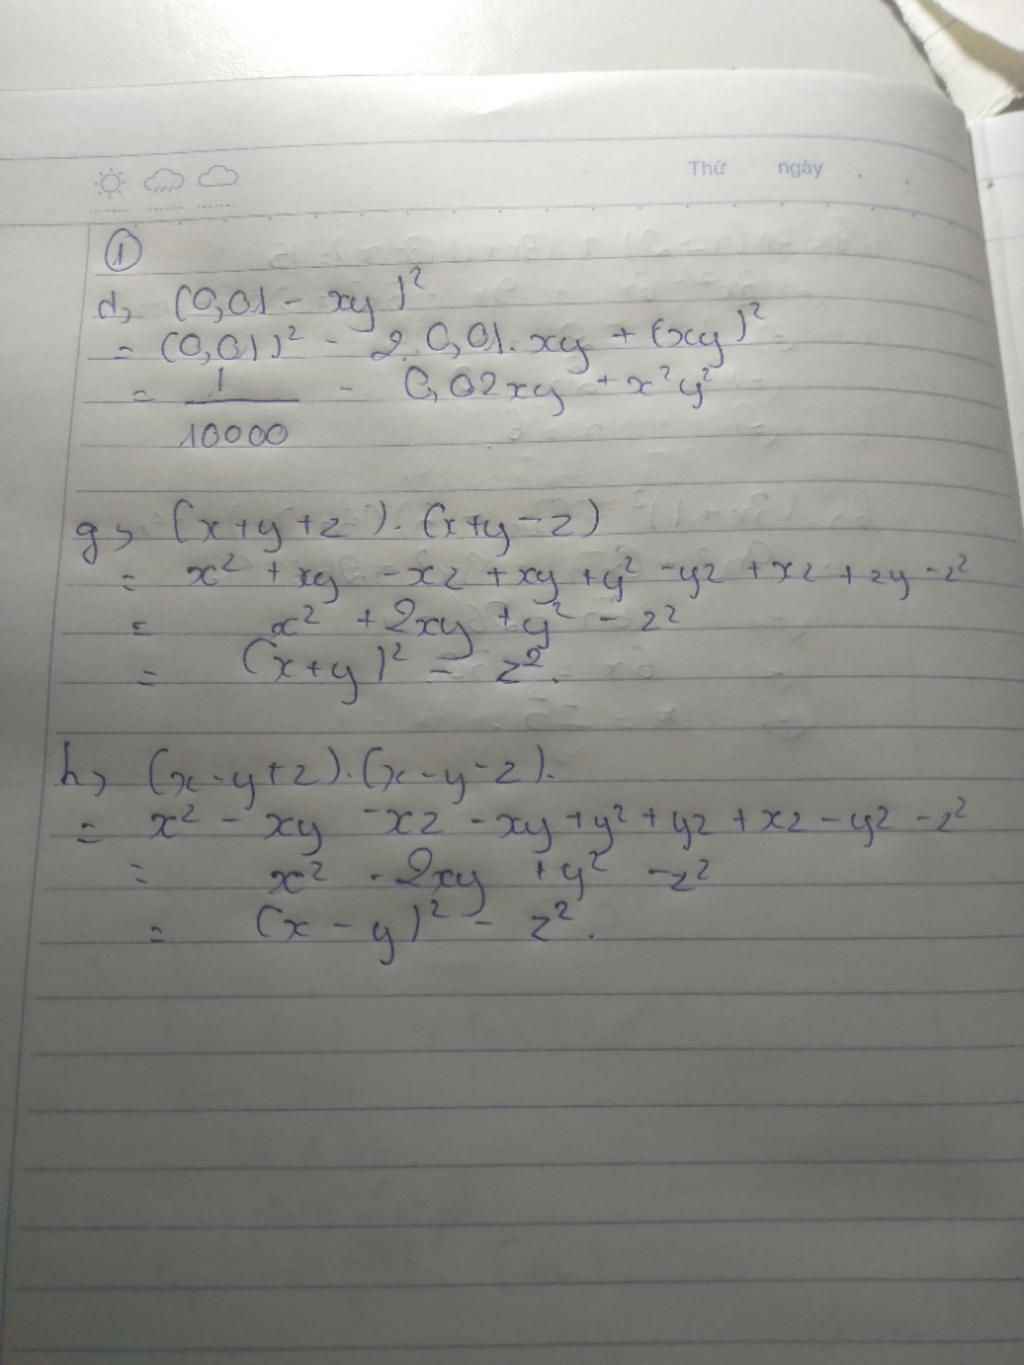 Thứ ngày
①
d, (0,01 - xy)²
= (0,01)² - 2.0,01.xy + (xy)²
= 1/10000 - 0,02xy + x²y²
g, (x+y+z).(x+y-z)
= x² + xy - xz + xy + y² - yz + xz + zy - z²
= x² + 2xy + y² - z²
= (x+y)² - z².
h, (x-y+z).(x-y-z).
= x² - xy - xz - xy + y² + yz + xz - yz - z²
= x² - 2xy + y² - z²
= (x - y)² - z².